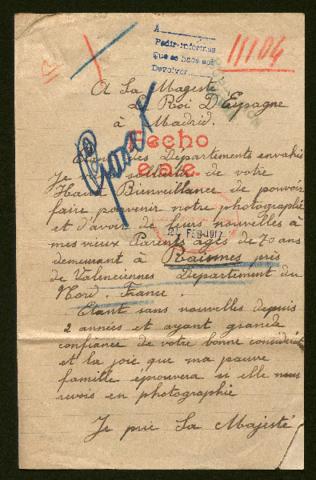 A
Pedir informes
que se hace sol
Devolver
11104
A Sa Magesté
Le Roi D'Espagne
à Madrid.
Hecho
E.D.E.
des Départements envahis
Je
de votre
Haute Bienveillance de pouvoir
faire parvenir notre photographie
et d'avoir de leurs nouvelles à
mes vieux Parents agés de 70 ans
demeurant à Raismes près
de Valenciennes Département du
Nord France.
27 FEB 1917
Etant sans nouvelles depuis
2 années et ayant grande
confiance de votre bonne
et la joie que ma pauvre
famille éprouvera si elle nous
revois en photographie
Je prie Sa Majesté